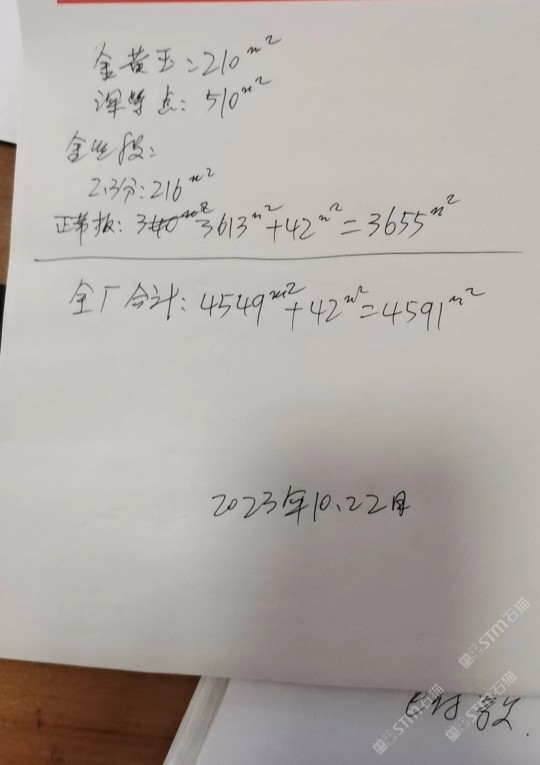 金黄玉:210m²
深啡点:510m²
金世段:
2.3分:216m²
正常板:3613m²+42m²=3655m²
全厂合计:4549m²+42m²=4591m²
2023年10.22日
STM石猫
STM石猫
STM石猫